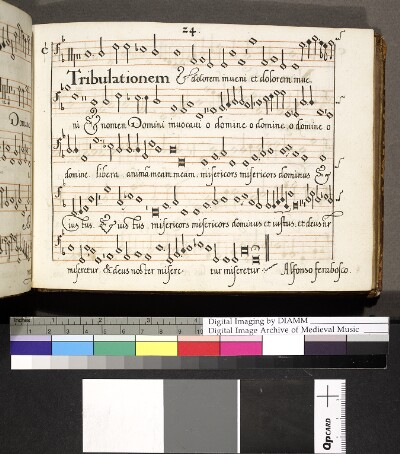 24.
C
Tribulationem & dolorem inveni et dolorem inve
ni & nomen Domini invocavi o domine o domine o domine o
domine libera animam meam meam misericors misericors dominus &
ius tus. & ius tus misericors misericors dominus et iustus, et deus nr
miseretur & deus noster misere tur miseretur Alfonso ferabosco.
Digital Imaging by DIAMM
Digital Image Archive of Medieval Music
inches
1 2 3 4 5 6 7 8 9 10
QPCARD